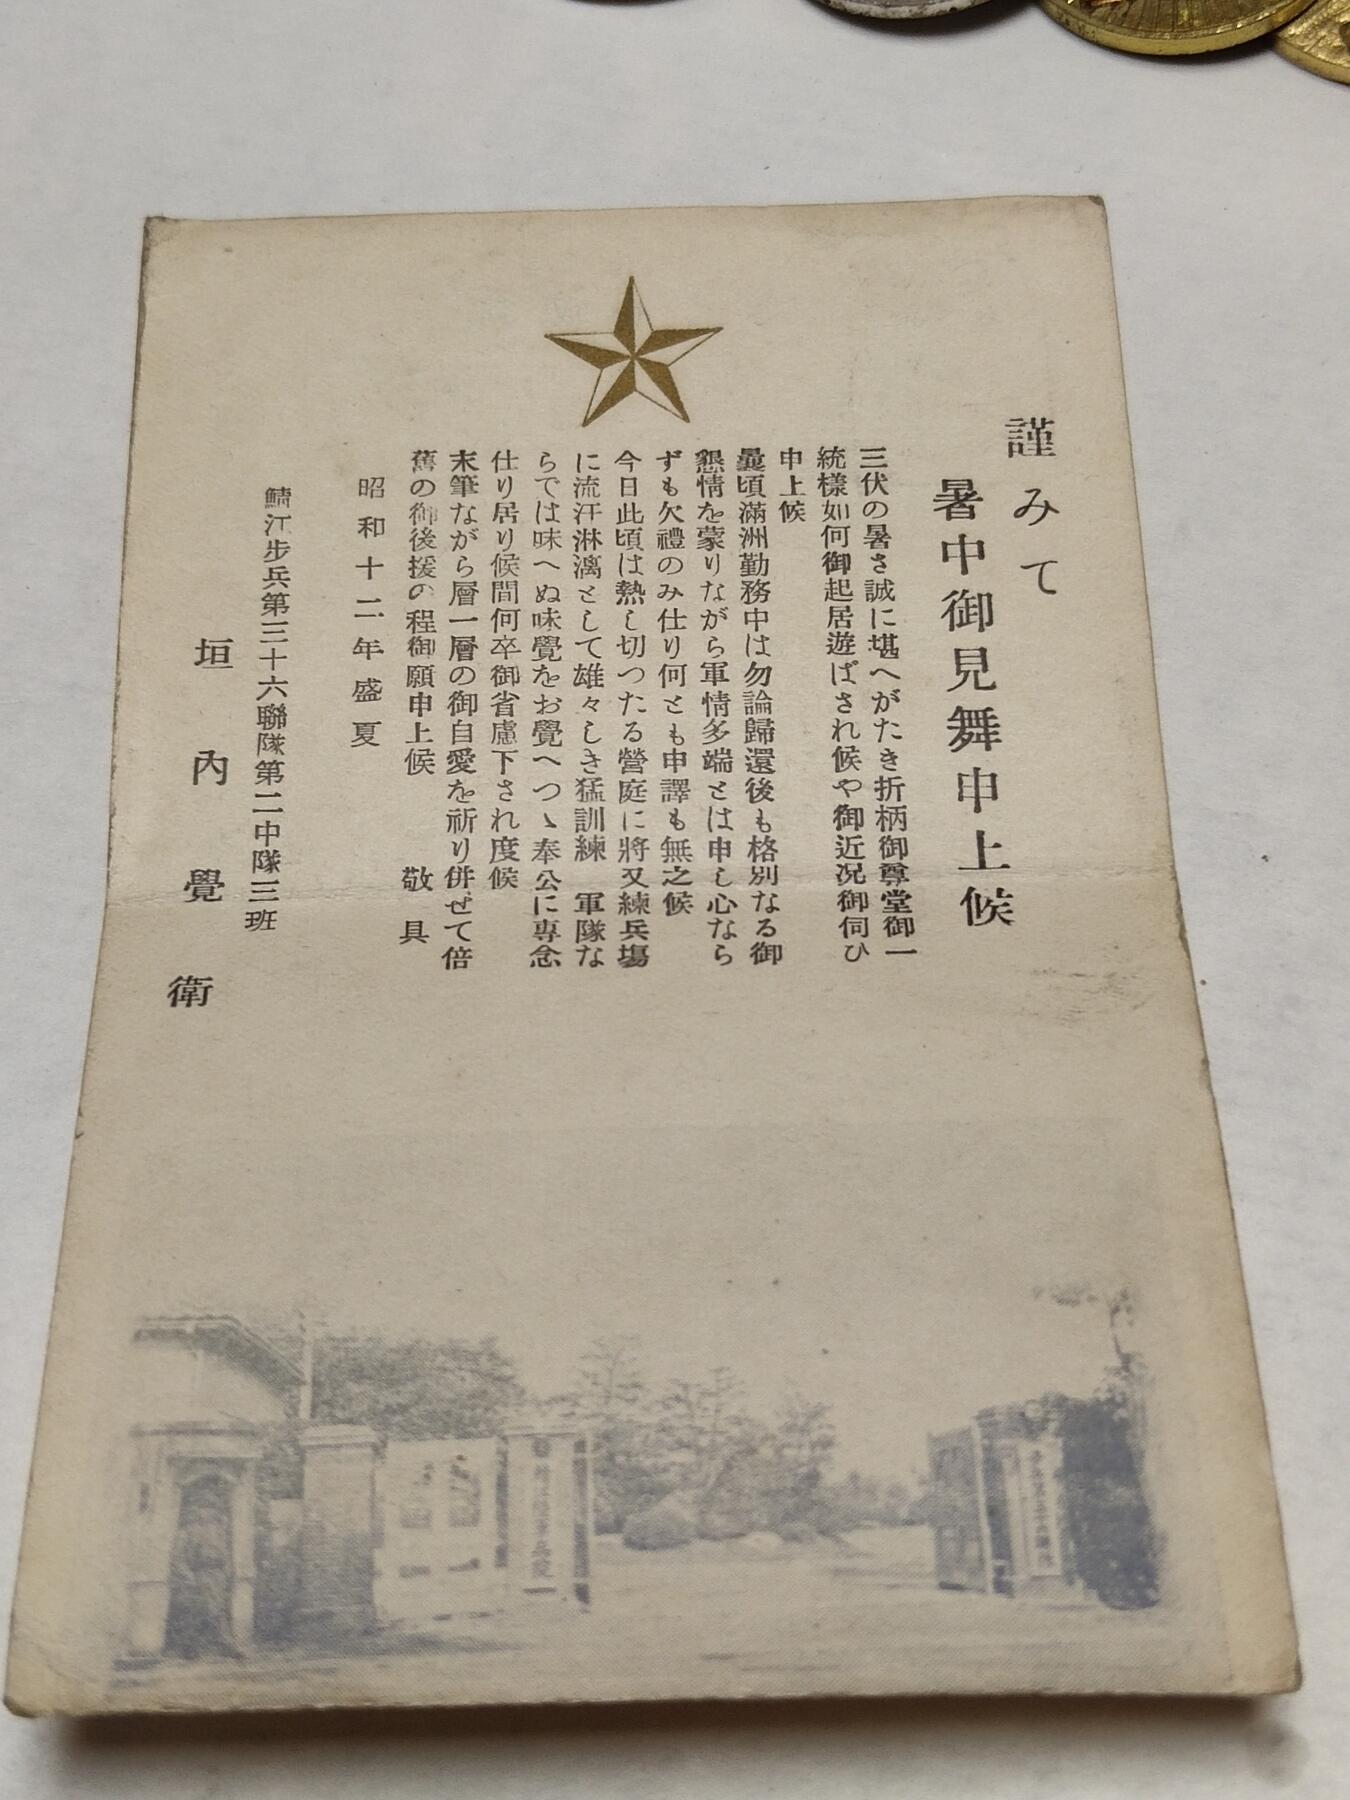 謹みて
暑中御見舞申上候
三伏の暑さ誠に堪へがたき折柄御尊堂御一
統樣如何御起居遊ばされ候や御近况御伺ひ
申上候
曩頃滿洲勤務中は勿論歸還後も格別なる御
懇情を蒙りながら軍情多端とは申し心なら
ずも欠禮のみ仕り何とも申譯も無之候
今日此頃は熱し切つたる營庭に將又練兵塲
に流汗淋漓として雄々しき猛訓練　軍隊な
らでは味へぬ味覺をお覺へつゝ奉公に專念
仕り居り候間何卒御省慮下され度候
末筆ながら層一層の御自愛を祈り併せて倍
舊の御後援の程御願申上候　敬具
昭和十二年盛夏
鯖江步兵第三十六聯隊第二中隊三班
垣內覺衛